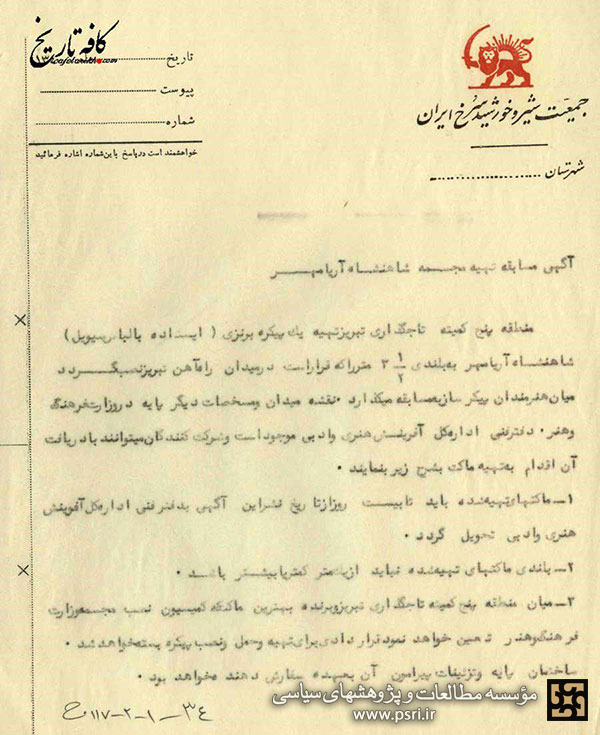 کافه تاریخ
cafetarikh.com
تاریخ
پیوست
شماره
خواهشمند است در پاسخ باین شماره اشاره فرمائید
جمعیت شیر و خورشید سرخ ایران
شهرستان
آگهی مسابقه تهیه مجسمه شاهنشاه آریامهر
منطقه پنج کمیته تاجگذاری تبریز تهیه یك پیكره برنزی ( ایستاده بالباس سیویل )
شاهنشاه آریامهر به بلندی ۳ ۱/۲ متر را كه قرار است در میدان راه آهن تبریز نصب گردد
میان هنرمندان پیكر ساز به مسابقه میگذارد ۰ نقشه میدان و مشخصات دیگر پایه در وزارت فرهنگ
و هنر ۰ دفتر فنی اداره كل آفرینش هنری و ادبی موجود است و شركت كنندگان میتوانند با دریافت
آن اقدام به تهیه ماكت بشرح زیر بنمایند ۰
۱ـ ماكتهای تهیه شده باید تا بیست روز از تاریخ نشر این آگهی بدفتر فنی اداره كل آفرینش
هنری و ادبی تحویل گردد ۰
۲ـ بلندی ماكتهای تهیه شده نباید از یكمتر كمتر یا بیشتر باشد ۰
۳ـ میان منطقه پنج كمیته تاجگذاری تبریز و برنده بهترین ماكت كه كمیسیون نصب مجسمه وزارت
فرهنگ و هنر تعیین خواهد نمود قرار دادی برای تهیه و حمل و نصب پیكره بسته خواهد شد ۰
ساختمان پایه و تزئینات پیرامون آن بعهده سفارش دهنده خواهد بود ۰
۳۴ـ۱ـ۲ـ۱۱۷
مؤسسه مطالعات و پژوهشهای سیاسی
www.psri.ir